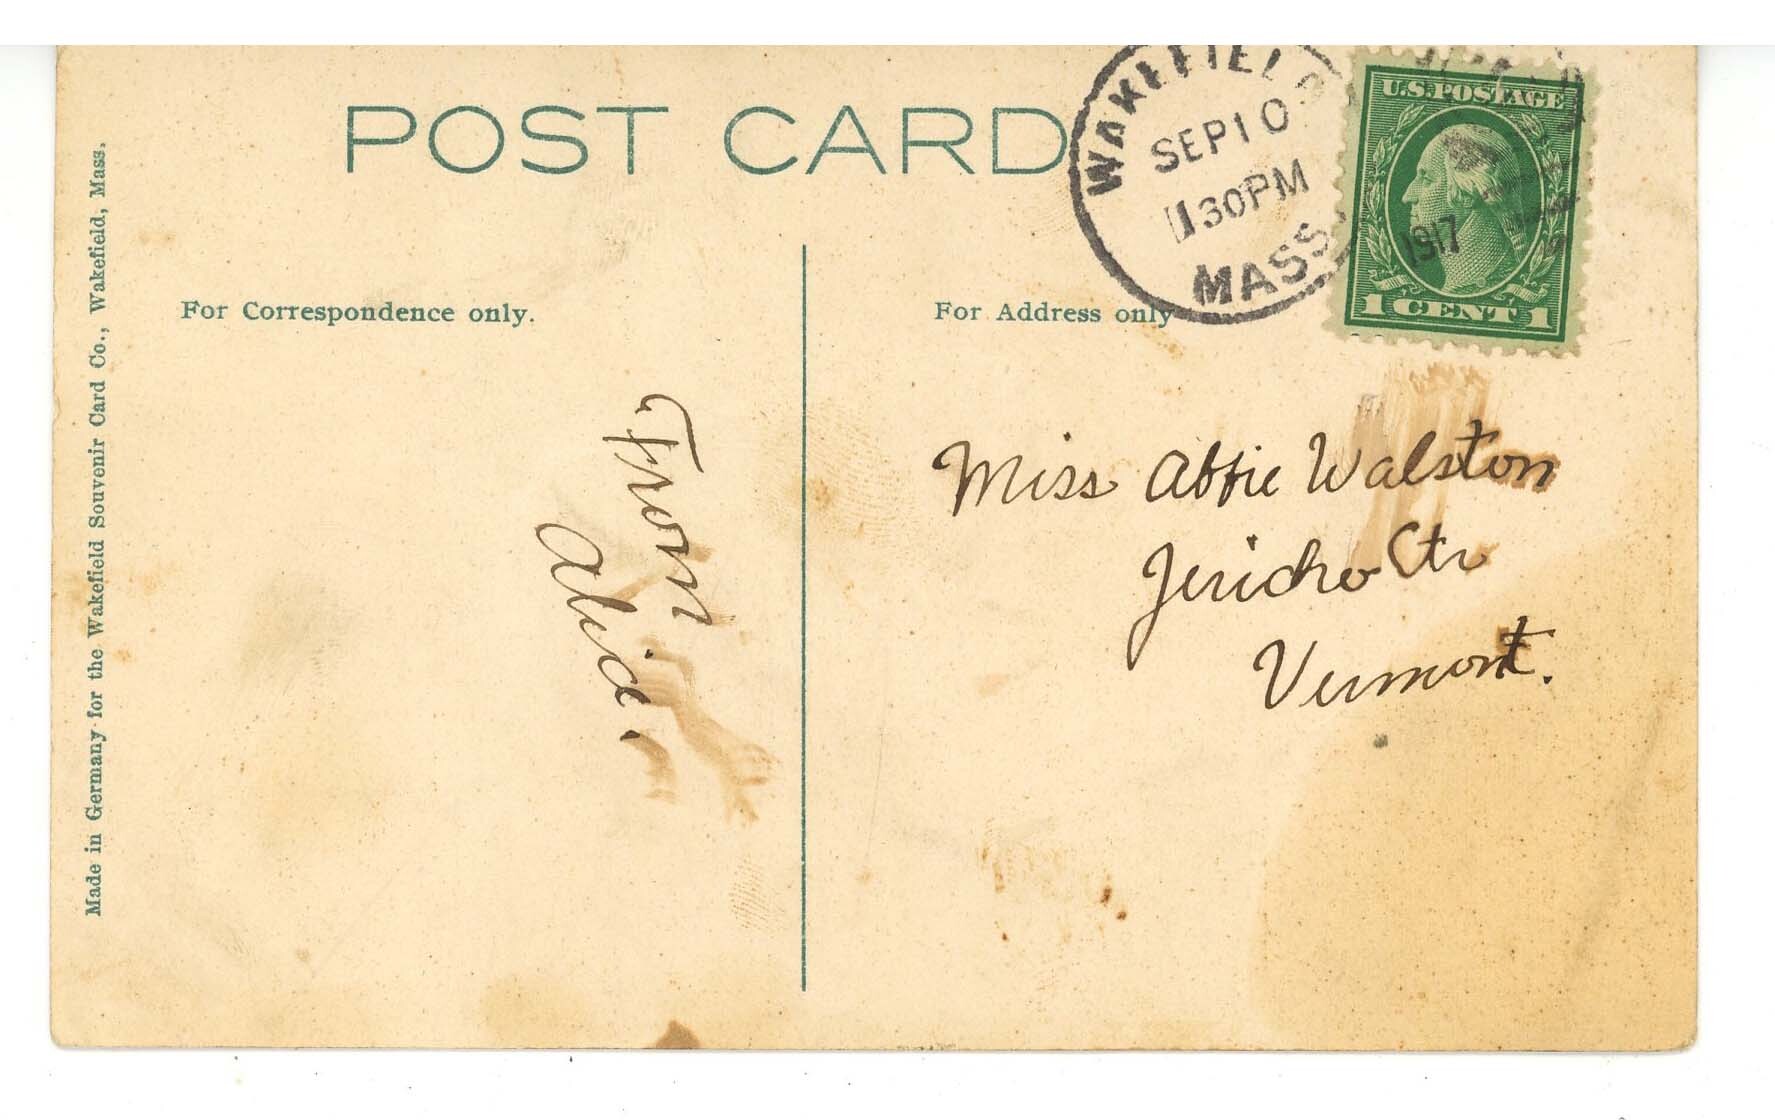 POST CARD
WAKEFIELD
SEP 10
130PM
1917
MASS.
U.S.POSTAGE
1 CENT 1
For Correspondence only.
For Address only
From
Alice.
Miss Abbie Walston
Jericho Ctr
Vermont.
Made in Germany for the Wakefield Souvenir Card Co., Wakefield, Mass.